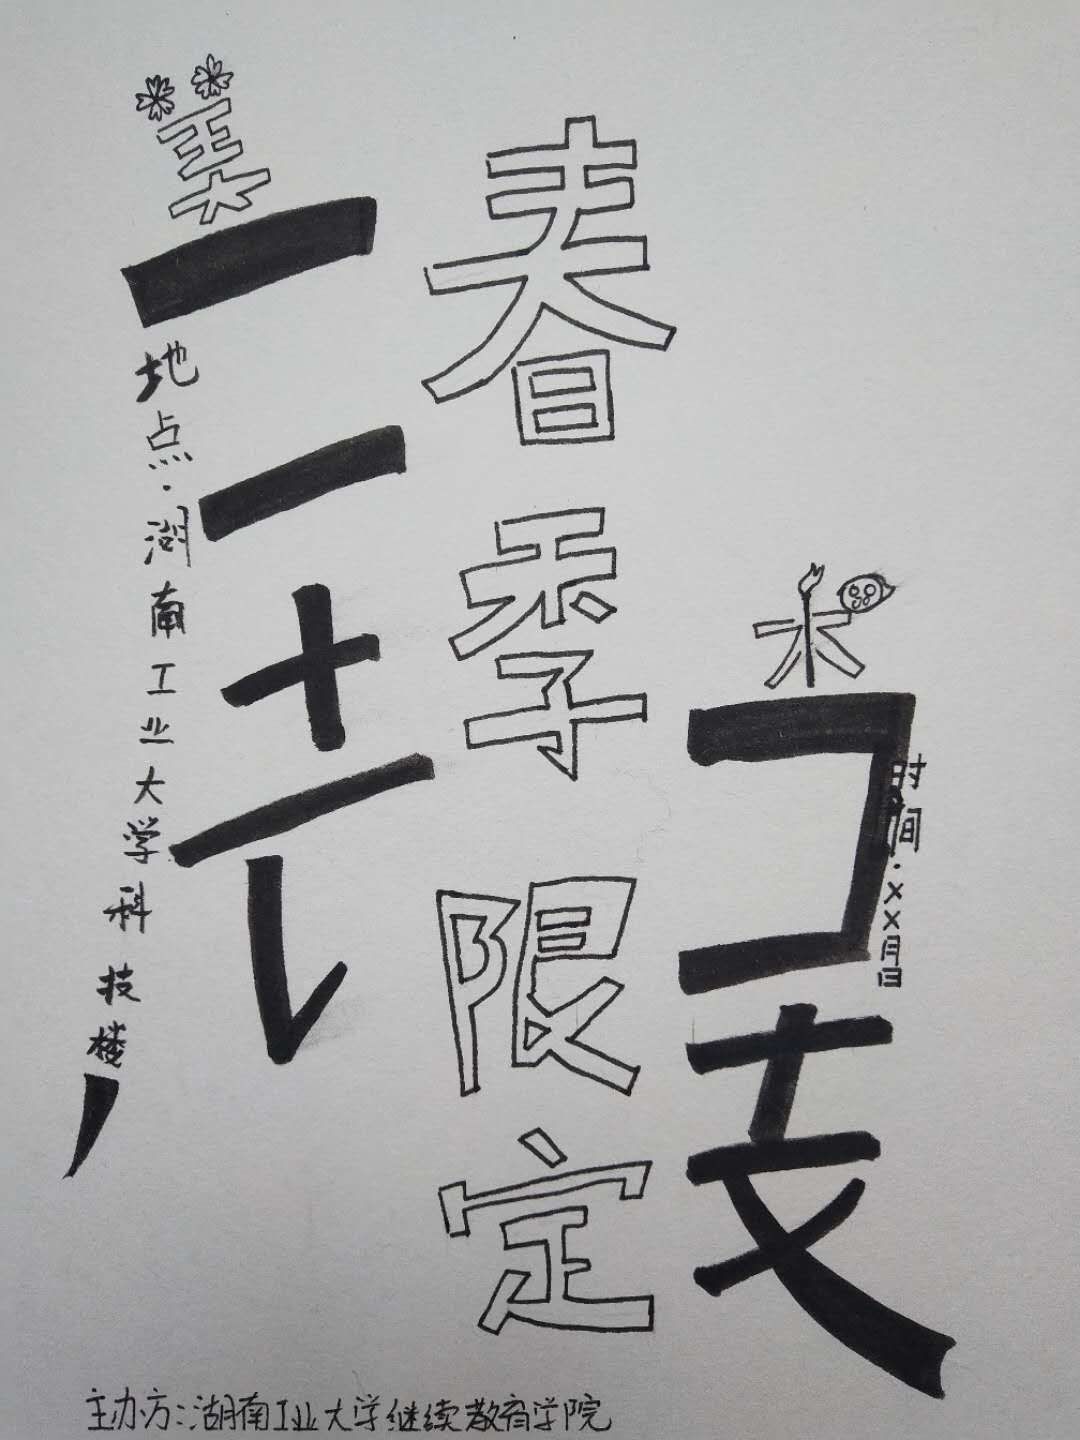 美
地点·湖南工业大学科技楼
春季限定
术
时间·XX月日
主办方:湖南工业大学继续教育学院